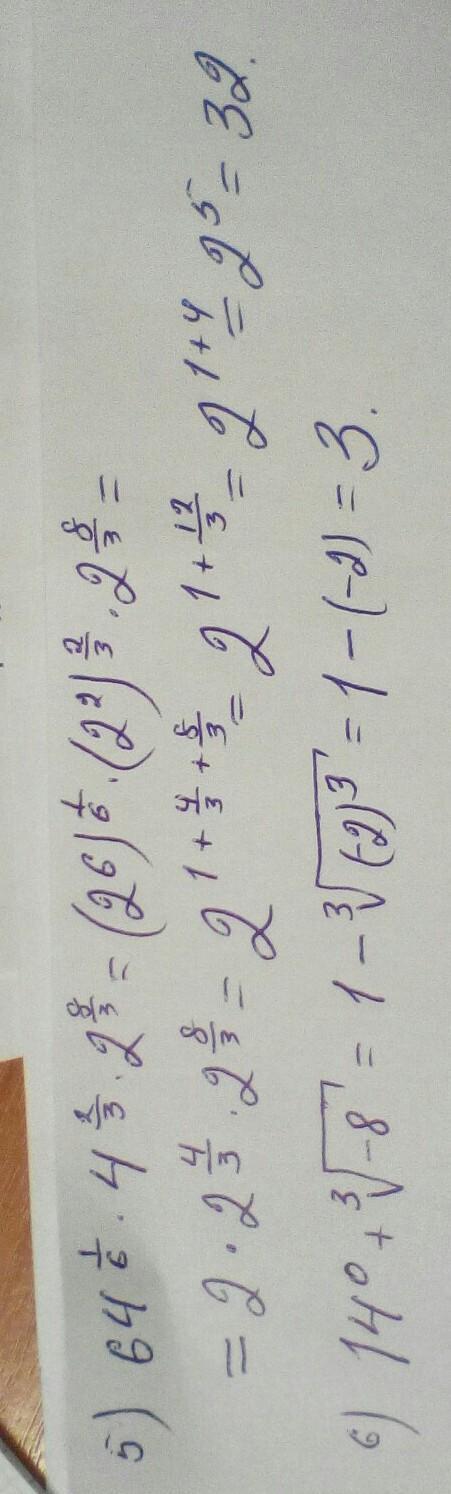 5) 64^{1/6} · 4^{2/3} · 2^{8/3} = (2^6)^{1/6} · (2^2)^{2/3} · 2^{8/3} =
= 2 · 2^{4/3} · 2^{8/3} = 2^{1 + 4/3 + 8/3} = 2^{1 + 12/3} = 2^{1+4} = 2^5 = 32.
6) 14^0 + ∛(-8) = 1 - ∛((-2)^3) = 1 - (-2) = 3.